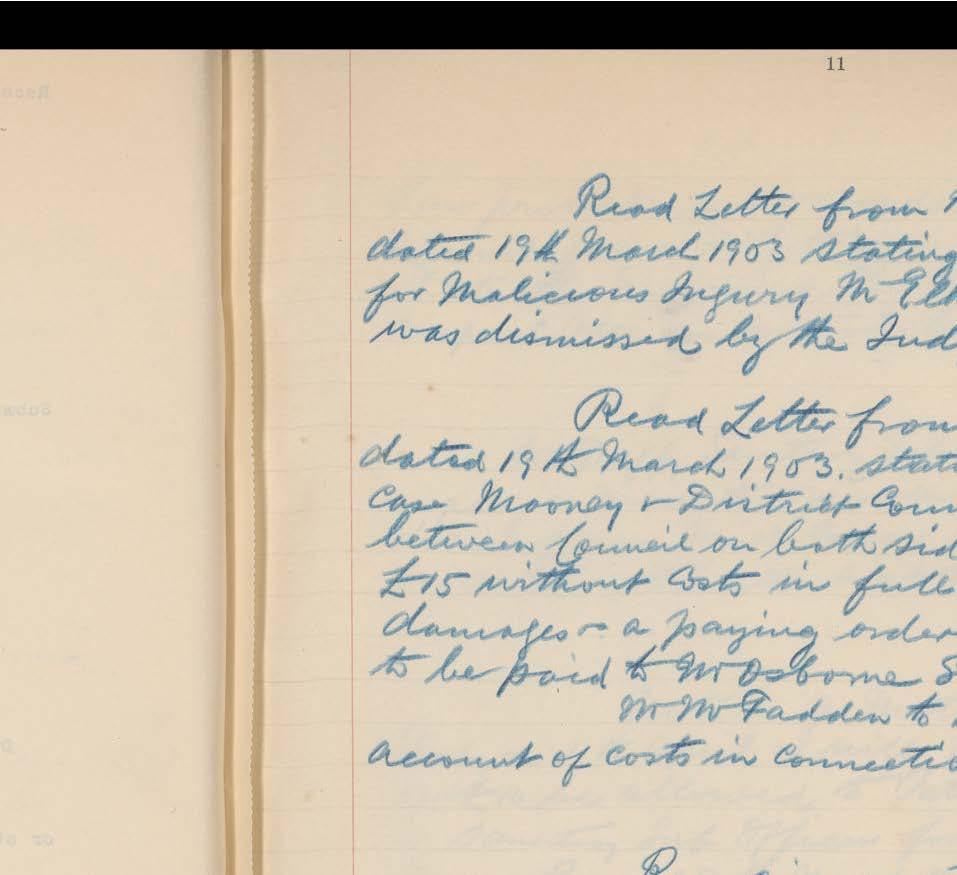 11
Read Letter from
dated 19th March 1903 stating
for Malicious Ingury McEl
was dismissed by the Jud
Read Letter from
dated 19th March 1903. stat
case Mooney v District Coun
between Council on both sid
£15 without Costs in full
damages & a paying order
to be paid to Mr Osborne S
Mr McFadden to
account of costs in connectio